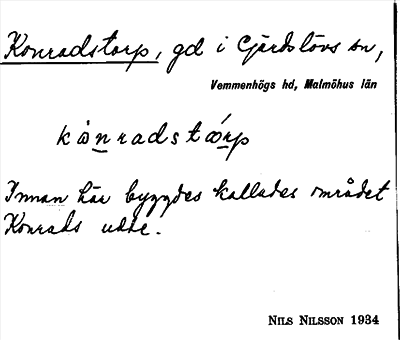 Konradstorp, gd i Gärdslövs sn,
Vemmenhögs hd, Malmöhus län
kånradstårp
Innan här byggdes kallades området
Konrads udde.
NILS NILSSON 1934